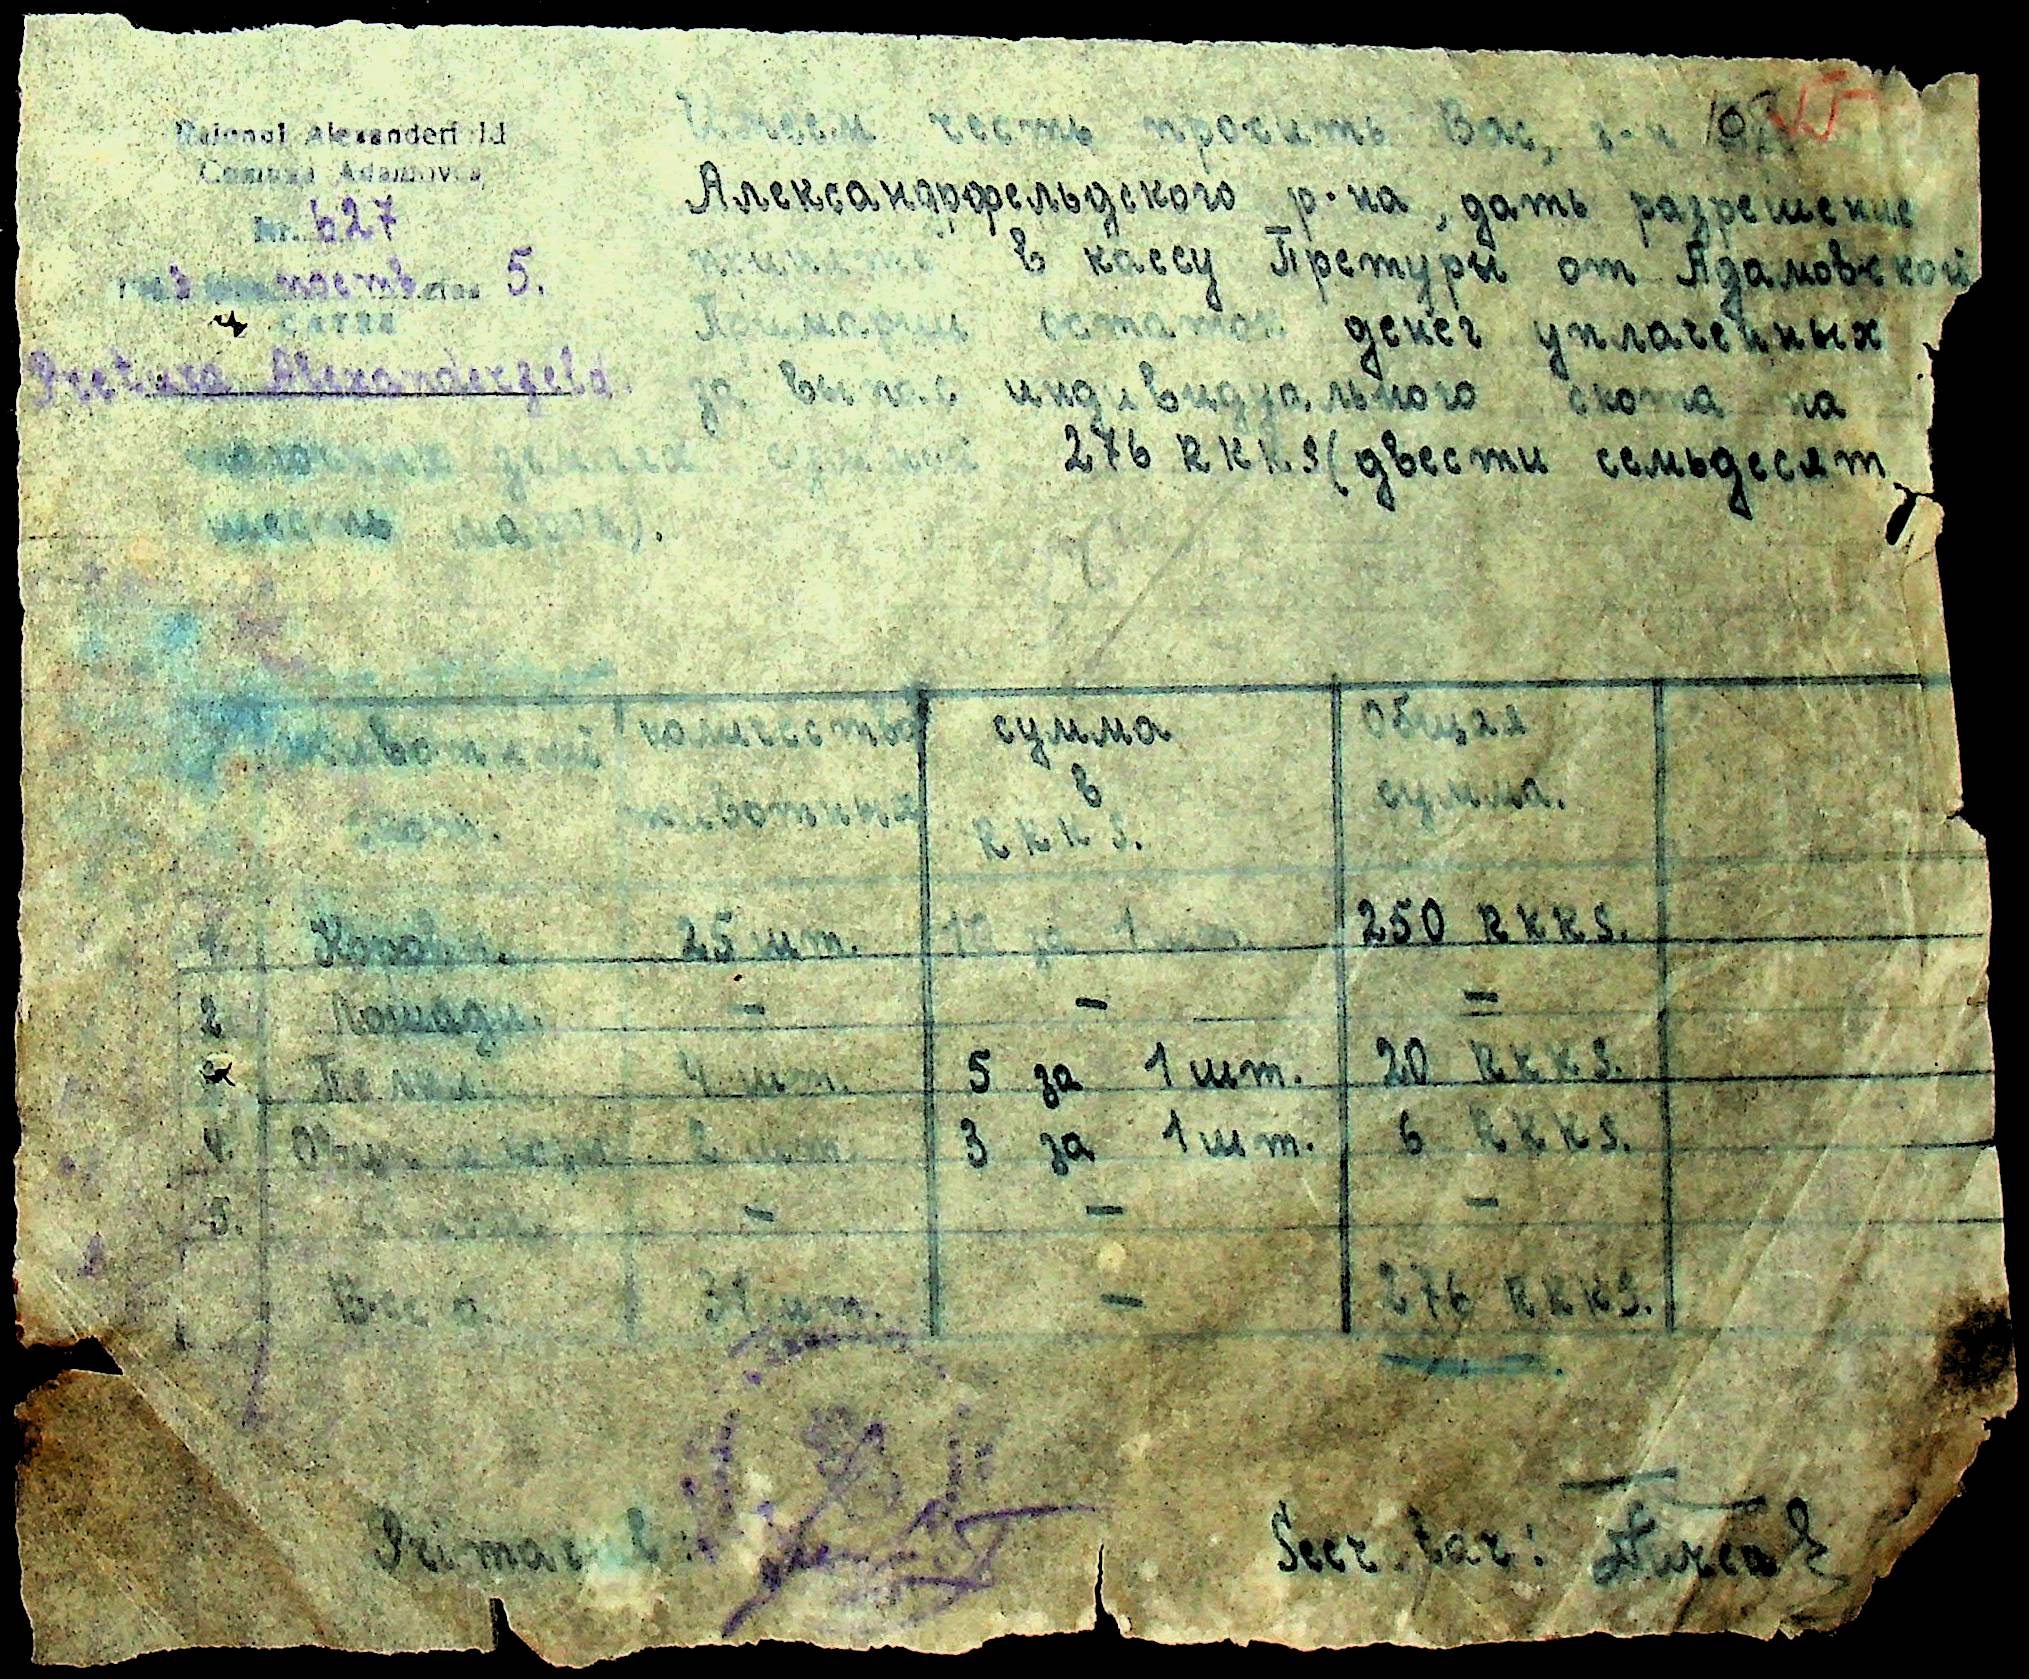 Raionul Alexanderfeld
Comuna Adamovca
Nr. 627
5.
CĂTRE
Pretura Alexanderfeld
Имеем честь просить Вас, г-н
Александрфельдского р-на, дать разрешение
принять в кассу Претуры от Адамовской
Примарии остаток денег уплаченных
за выпас индивидуального скота на
землях суммой 276 RKKS (двести семьдесят
шесть марок).
количество сумма Общая
скот. животных в сумма.
RKKS.
1. Коровы. 25 шт. 10 за 1 шт. 250 RKKS.
2. Лошади. - - =
3. Телки. 4 шт. 5 за 1 шт. 20 RKKS.
4. Овцы и козы 2 шт. 3 за 1 шт. 6 RKKS.
5. - - -
Всего. 31 шт. - 276 RKKS.
Primarul: Secretar: